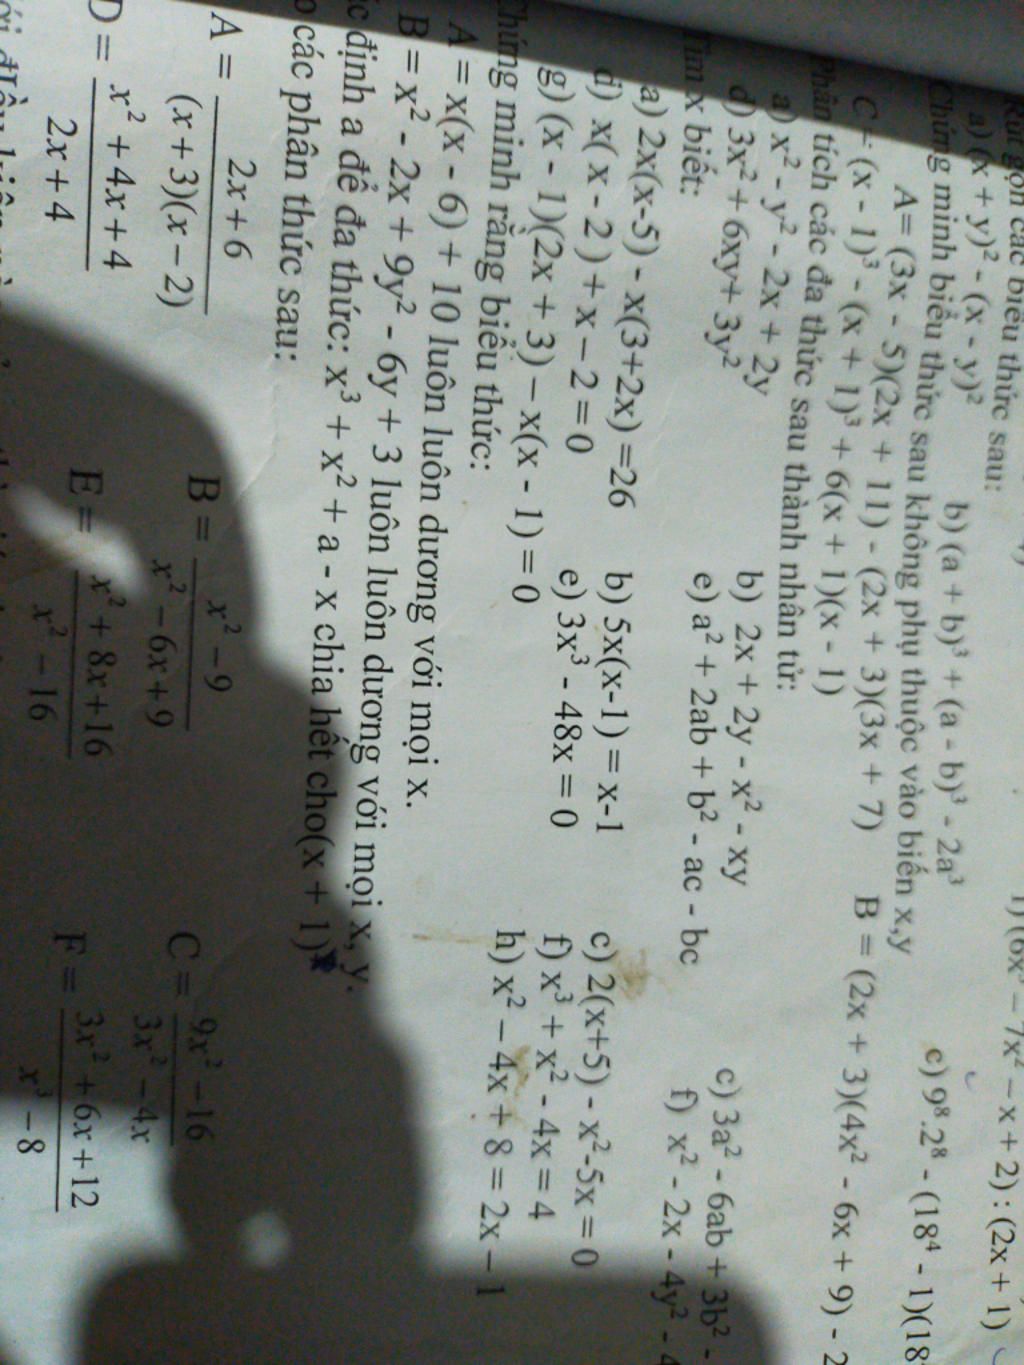 1) (6x³ – 7x² – x + 2) : (2x + 1)
Rút gọn các biểu thức sau:
a) (x + y)² - (x - y)² b) (a + b)³ + (a - b)³ - 2a³ c) 9⁸.2⁸ - (18⁴ - 1)(18
Chứng minh biểu thức sau không phụ thuộc vào biến x,y
A= (3x - 5)(2x + 11) - (2x + 3)(3x + 7) B = (2x + 3)(4x² - 6x + 9) - 2
C = (x - 1)³ - (x + 1)³ + 6(x + 1)(x - 1)
Phân tích các đa thức sau thành nhân tử:
a) x² - y² - 2x + 2y b) 2x + 2y - x² - xy c) 3a² - 6ab + 3b² -
d) 3x² + 6xy+ 3y² e) a² + 2ab + b² - ac - bc f) x² - 2x - 4y² - 4
Tìm x biết:
a) 2x(x-5) - x(3+2x) =26 b) 5x(x-1) = x-1 c) 2(x+5) - x²-5x = 0
d) x( x - 2 ) + x – 2 = 0 e) 3x³ - 48x = 0 f) x³ + x² - 4x = 4
g) (x - 1)(2x + 3) – x(x - 1) = 0 h) x² – 4x + 8 = 2x – 1
Chứng minh rằng biểu thức:
A = x(x - 6) + 10 luôn luôn dương với mọi x.
B = x² - 2x + 9y² - 6y + 3 luôn luôn dương với mọi x, y.
định a để đa thức: x³ + x² + a - x chia hết cho(x + 1)
các phân thức sau:
A = \frac{2x + 6}{(x + 3)(x – 2)} B = \frac{x² – 9}{x² – 6x + 9} C = \frac{9x² – 16}{3x² – 4x}
D = \frac{x² + 4x + 4}{2x + 4} E = \frac{x² + 8x + 16}{x² – 16} F = \frac{3x² + 6x + 12}{x³ – 8}